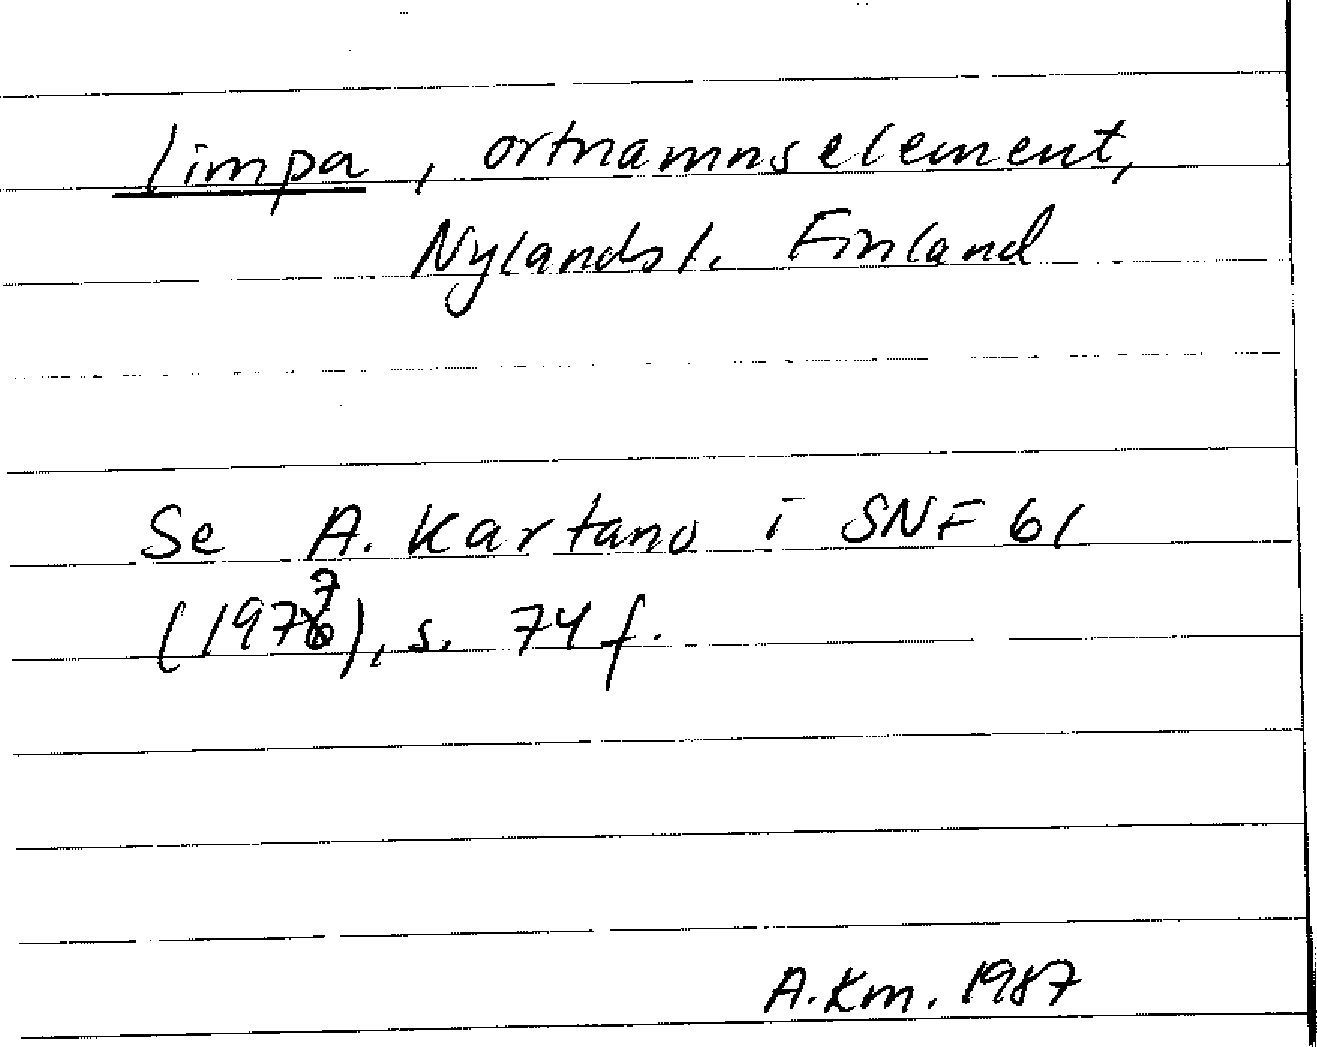 limpa, ortnamnselement,
Nylands l. Finland
Se A. Kartano i SNF 61
(1977), s. 74 f.
A.Km. 1987